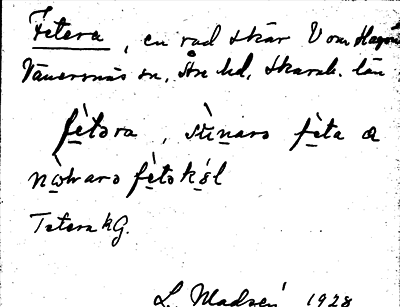 Fetera, en rad skär V om Hagön
Vänersnäs sn, Åse hd, Skarab. län
fètəra, stènarə fèta a
nòlvarə fètəkəl
Tetera KG.
L. Madsén 1928